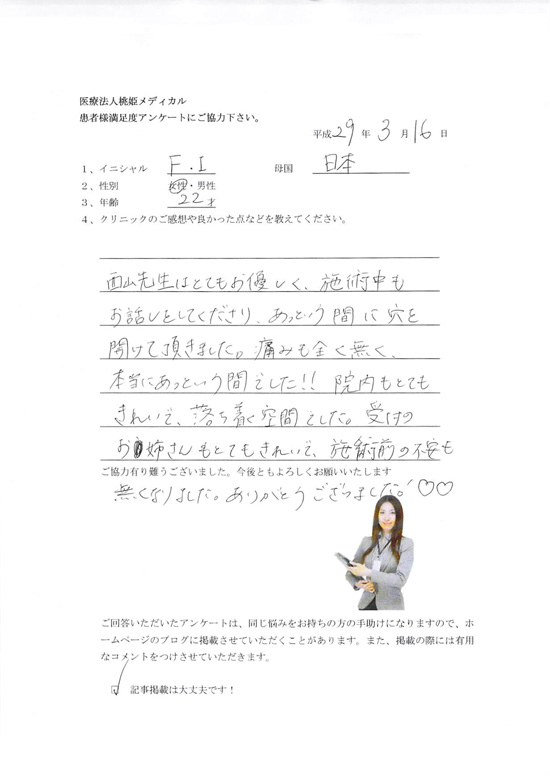 医療法人桃姫メディカル
患者様満足度アンケートにご協力下さい。
平成29年 3月16日
1、イニシャル F.I 母国 日本
2、性別 女性・男性
3、年齢 22才
4、クリニックのご感想や良かった点などを教えてください。
面山先生はとてもお優しく、施術中も
お話しをしてくださり、あっという間に穴を
開けて頂きました。痛みも全く無く、
本当にあっという間でした!! 院内もとても
きれいで、落ち着く空間でした。受付の
お姉さんもとてもきれいで、施術前の不安も
ご協力有り難うございました。今後ともよろしくお願いいたします
無くなりました。ありがとうございました!♡♡
ご回答いただいたアンケートは、同じ悩みをお持ちの方の手助けになりますので、ホ
ームページのブログに掲載させていただくことがあります。また、掲載の際には有用
なコメントをつけさせていただきます。
☑ 記事掲載は大丈夫です!